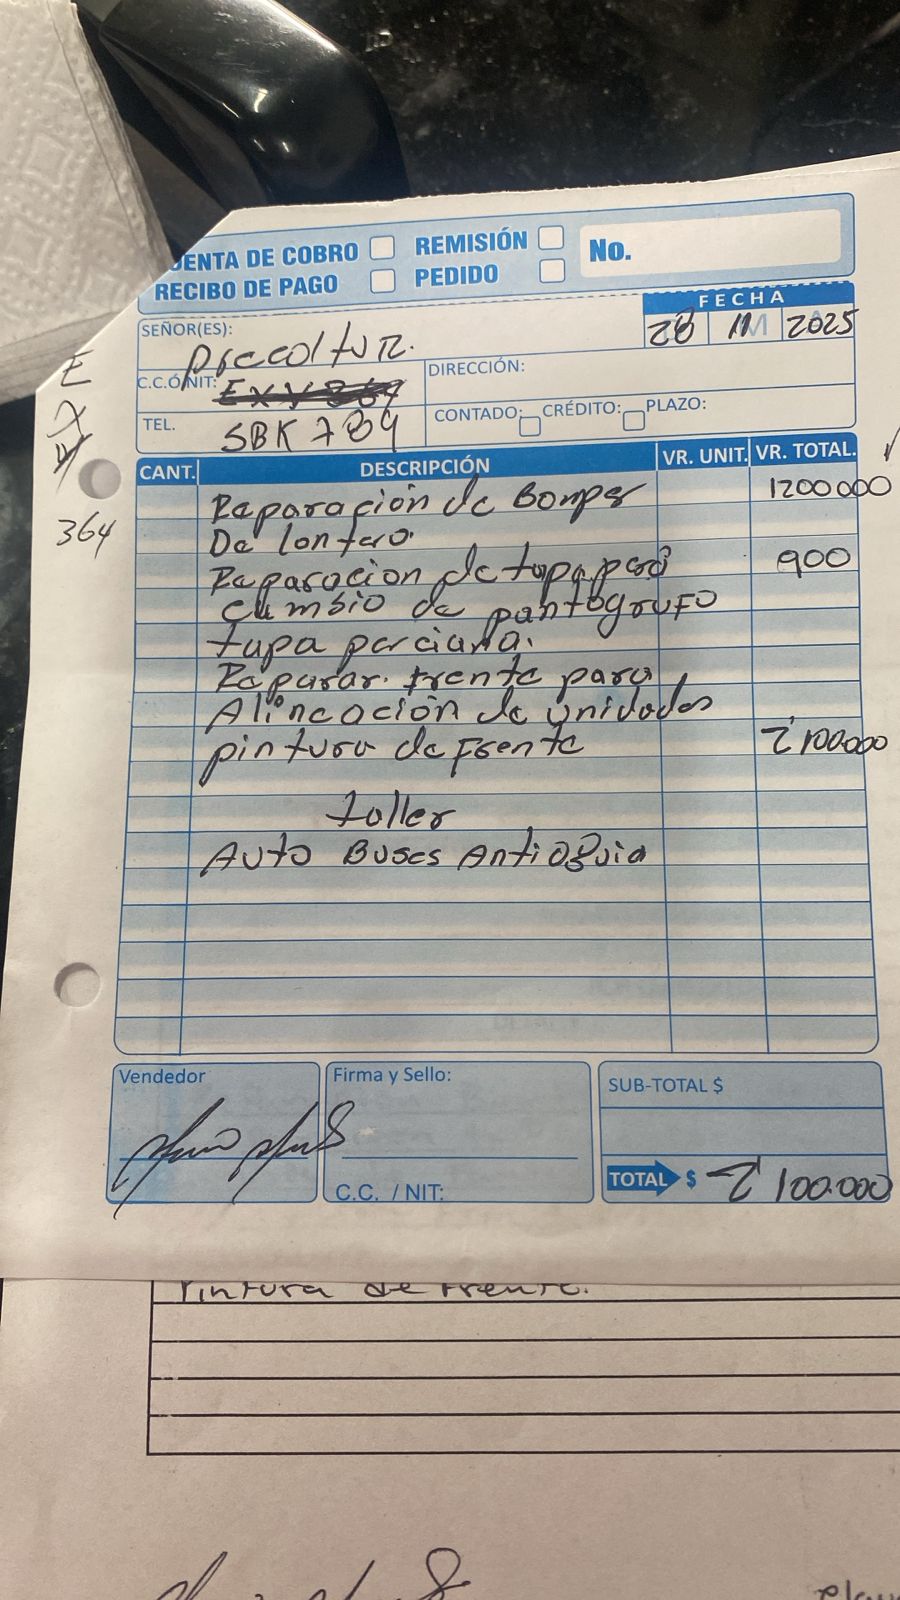 CUENTA DE COBRO REMISIÓN No.
RECIBO DE PAGO PEDIDO
FECHA
28 11 2025
SEÑOR(ES):
C.C.Ó NIT: DIRECCIÓN:
TEL. SBK 789 CONTADO: CRÉDITO: PLAZO:
E
X
364
CANT. DESCRIPCIÓN VR. UNIT. VR. TOTAL.
Reparación de Bomper 1200000
De lantero.
Reparacion de tapa 900
Cambio de pantografo
tapa perciana.
Reparar. frente para
Alineación de unidades
pintura de Frente 2'100.000
taller
Auto Buses Antioquia
Vendedor Firma y Sello: SUB-TOTAL $
C.C. / NIT: TOTAL $ 2'100.000
Pintura de Frente.